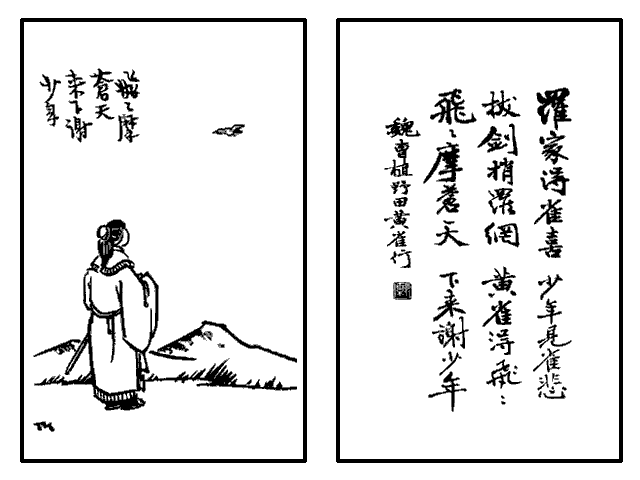 飛〻摩
蒼天
来下謝
少年
TK
羅家得雀喜 少年見雀悲
拔剑捎羅網 黄雀得飛〻
飛〻摩蒼天 下来謝少年
魏曹植野田黄雀行